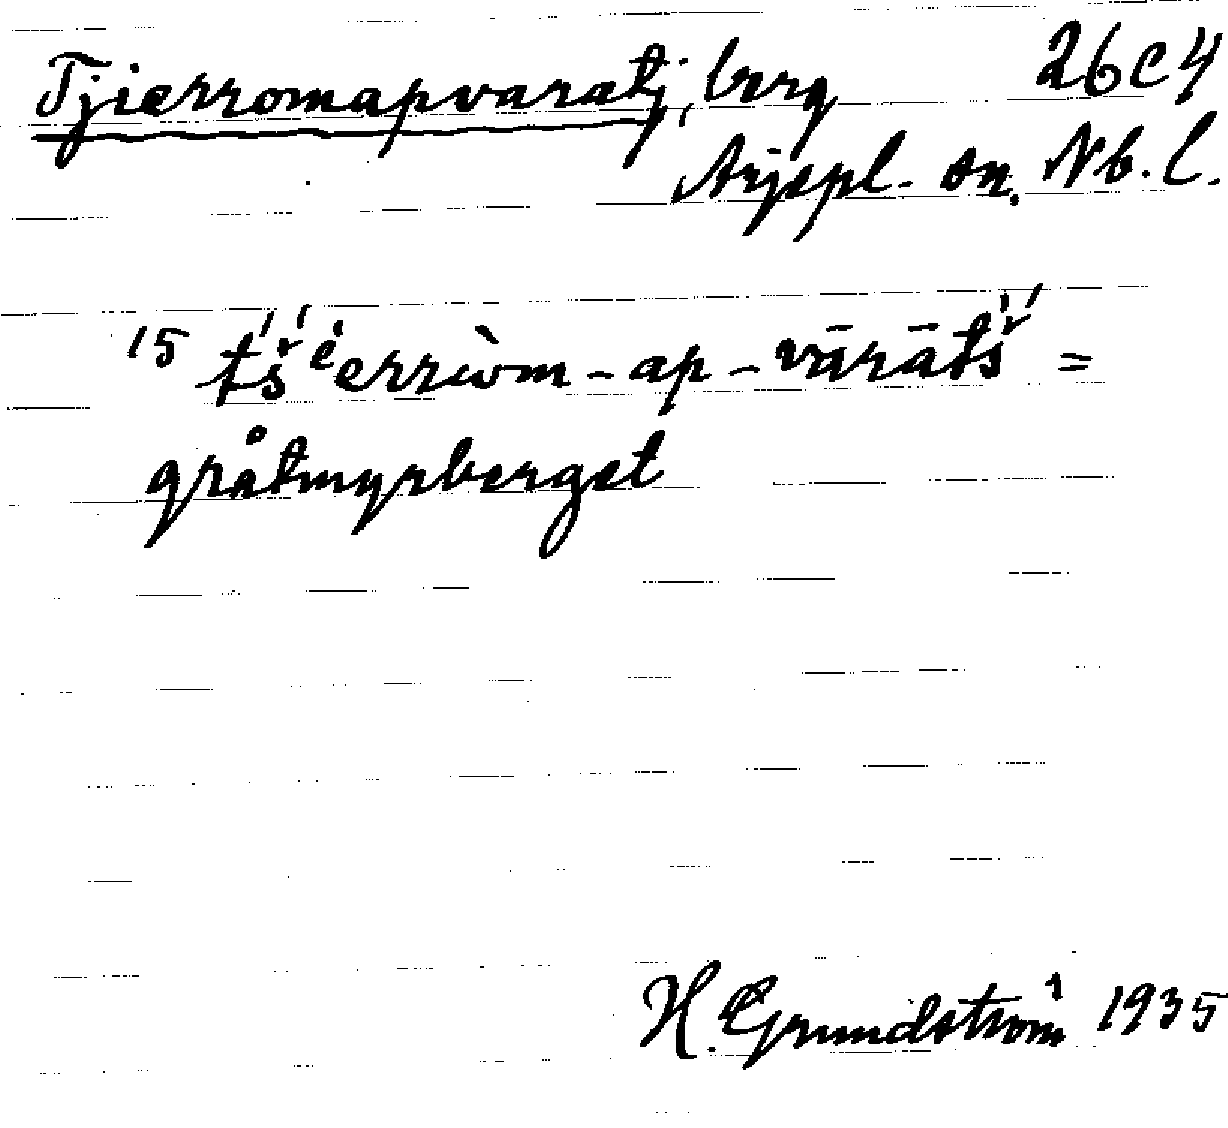 Tjierromapvaratj, berg 26C4
Arjepl. sn. Nb. l.
15 t́š́ ėerrìom - ap - vārātš́ =
gråtmyrberget
H. Grundström 1935